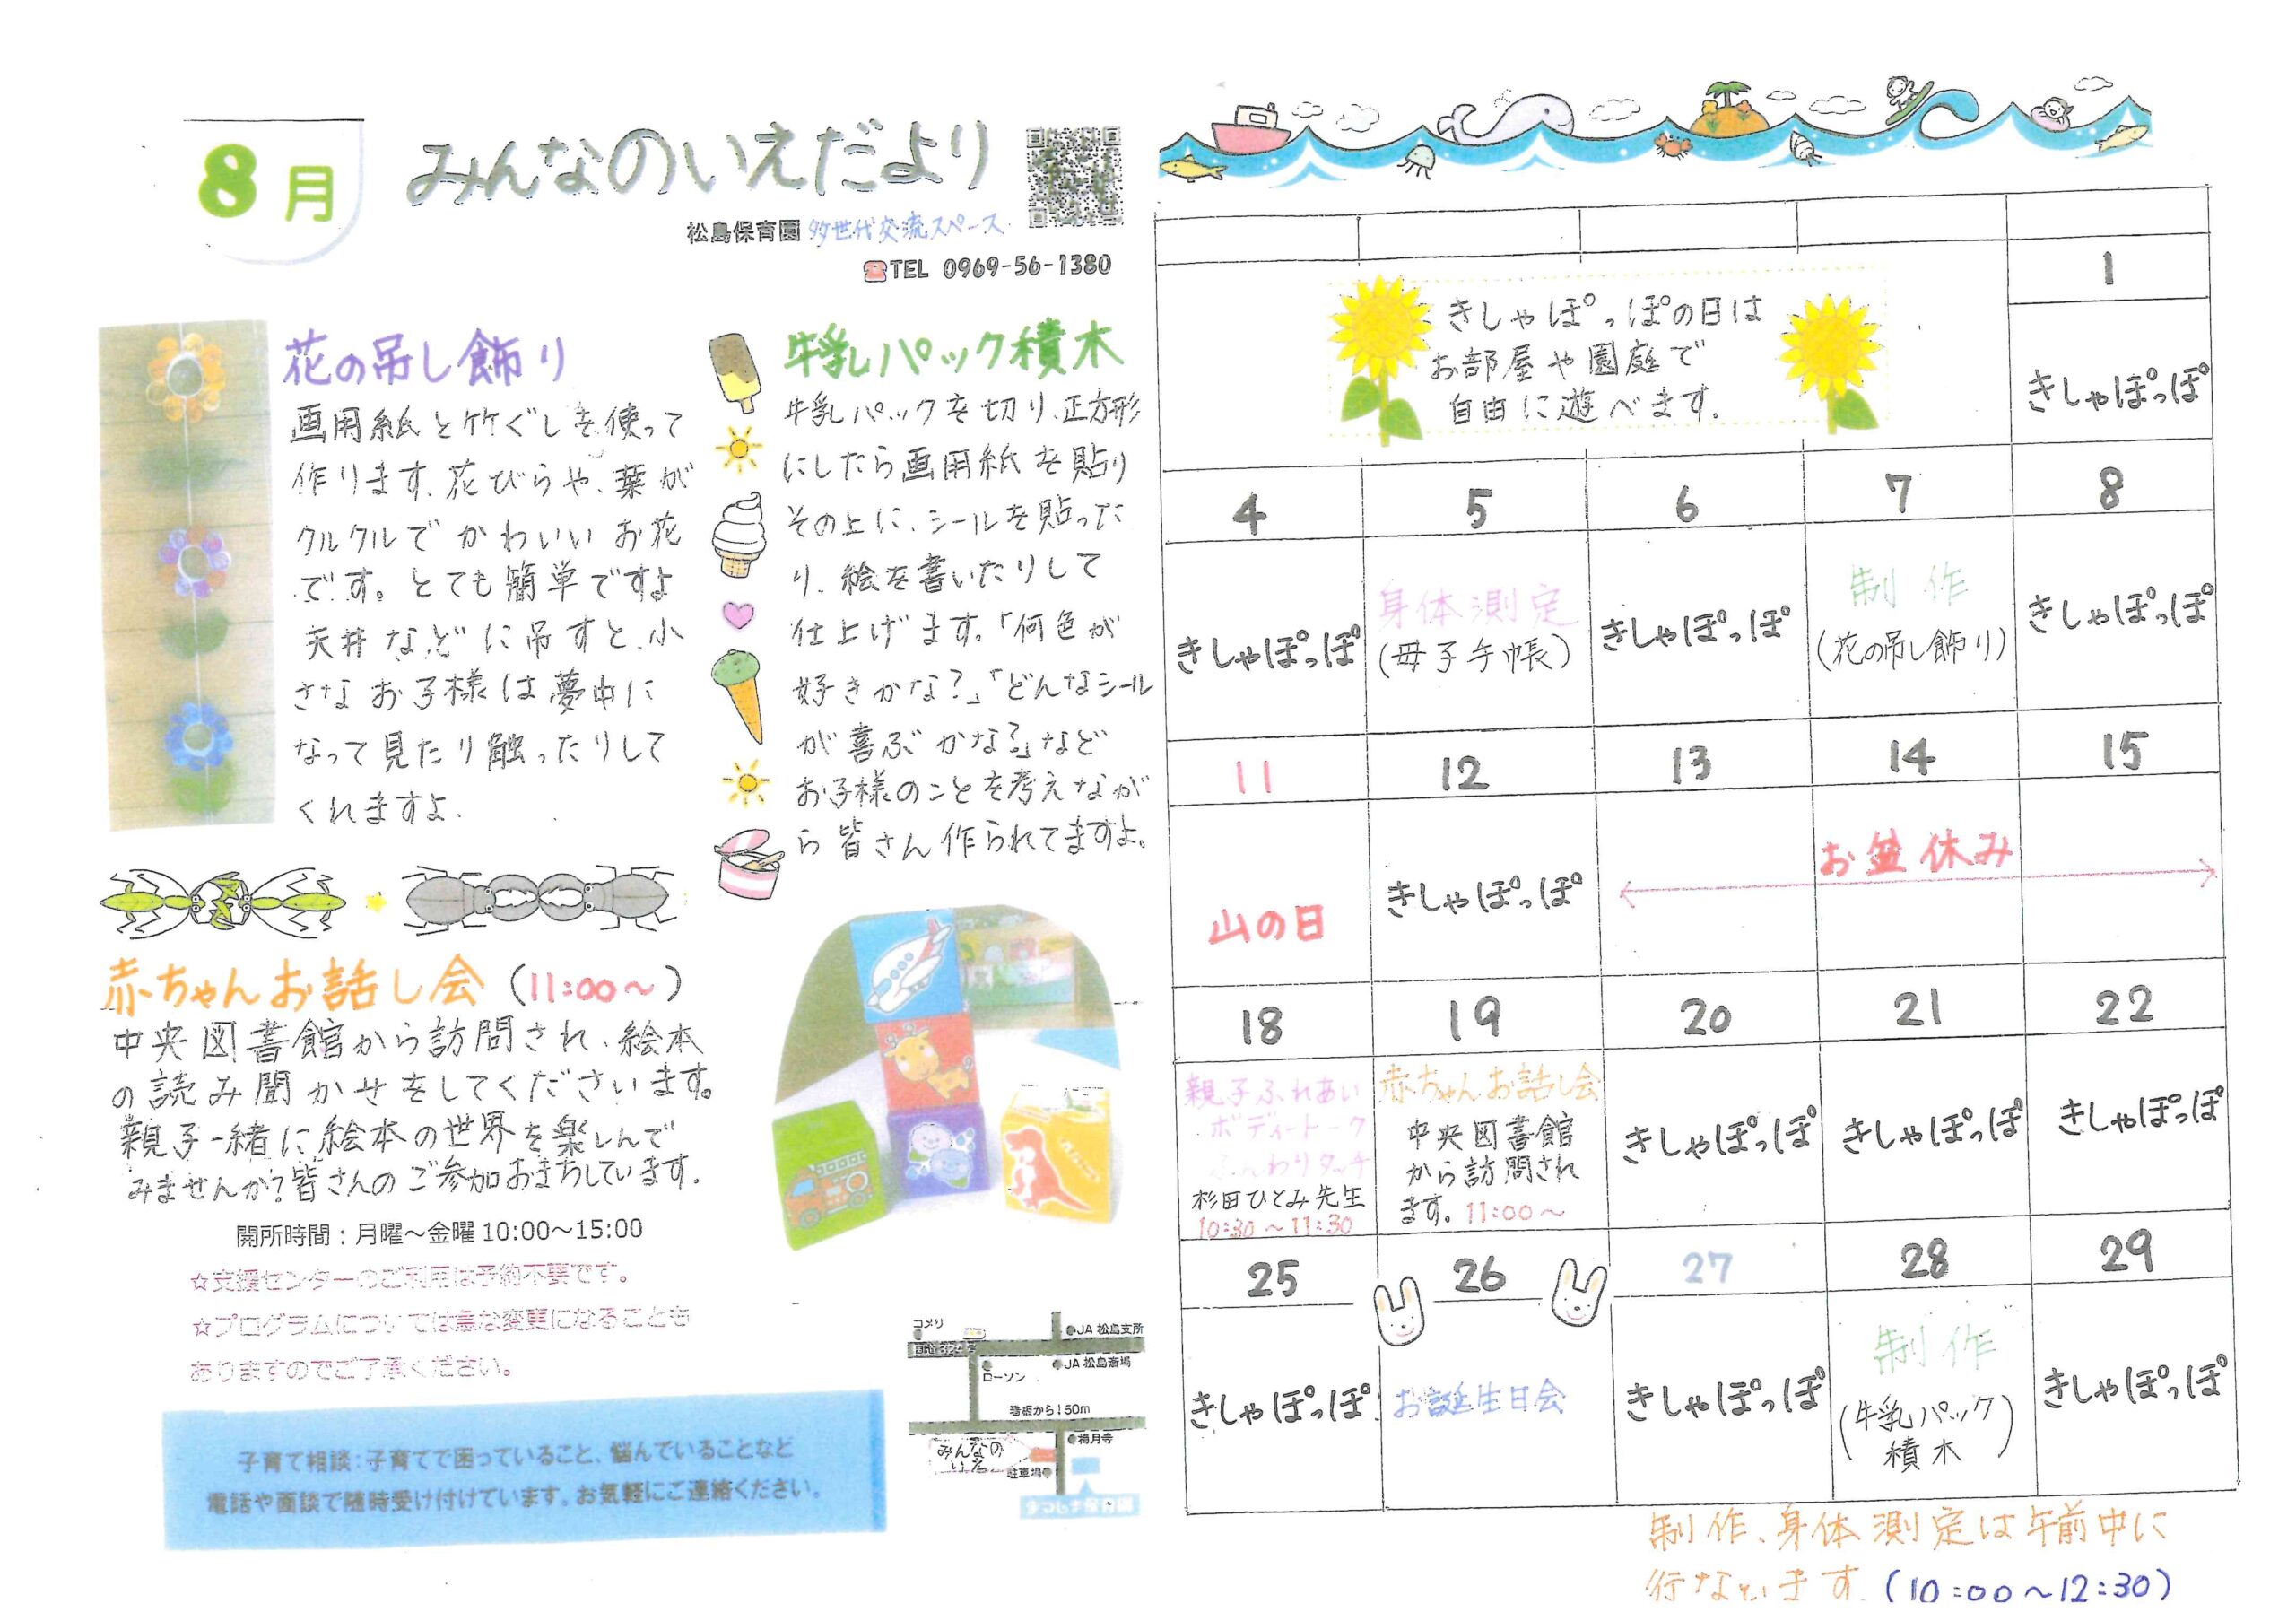 8月
みんなのいえだより
松島保育園 多世代交流スペース
☎TEL 0969-56-1380
花の吊し飾り
画用紙と竹ぐしを使って
作ります。花びらや、葉が
クルクルでかわいいお花
です。とても簡単ですよ
天井などに吊すと、小
さなお子様は夢中に
なって見たり触ったりして
くれますよ.
牛乳パック積木
牛乳パックを切り、正方形
にしたら画用紙を貼り
その上に、シールを貼った
り、絵を書いたりして
仕上げます。「何色が
好きかな?」「どんなシール
が喜ぶかな?」など
お子様のことを考えなが
ら皆さん作られてますよ。
赤ちゃんお話し会(11:00〜)
中央図書館から訪問され、絵本
の読み聞かせをしてくださいます。
親子一緒に絵本の世界を楽しんで
みませんか?皆さんのご参加おまちしています.
開所時間:月曜〜金曜 10:00〜15:00
☆支援センターのご利用は予約不要です。
☆プログラムについては急な変更になることも
ありますのでご了承ください。
子育て相談:子育てで困っていること、悩んでいることなど
電話や面談で随時受け付けています。お気軽にご連絡ください。
コメリ
JA 松島支所
国道324号
JA 松島斎場
ローソン
看板から150m
梅月寺
みんなの
いえ
駐車場
まつしま保育園
きしゃぽっぽの日は
お部屋や園庭で
自由に遊べます.
1
きしゃぽっぽ
4 5 6 7 8
きしゃぽっぽ
身体測定
(母子手帳)
きしゃぽっぽ
制作
(花の吊し飾り)
きしゃぽっぽ
11 12 13 14 15
山の日
きしゃぽっぽ
お盆休み
18 19 20 21 22
親子ふれあい
ボディートーク
ふんわりタッチ
杉田ひとみ先生
10:30〜11:30
赤ちゃんお話し会
中央図書館
から訪問され
ます。11:00〜
きしゃぽっぽ
きしゃぽっぽ
きしゃぽっぽ
25 26 27 28 29
きしゃぽっぽ
お誕生日会
きしゃぽっぽ
制作
(牛乳パック
積木)
きしゃぽっぽ
制作、身体測定は午前中に
行ないます.(10:00〜12:30)